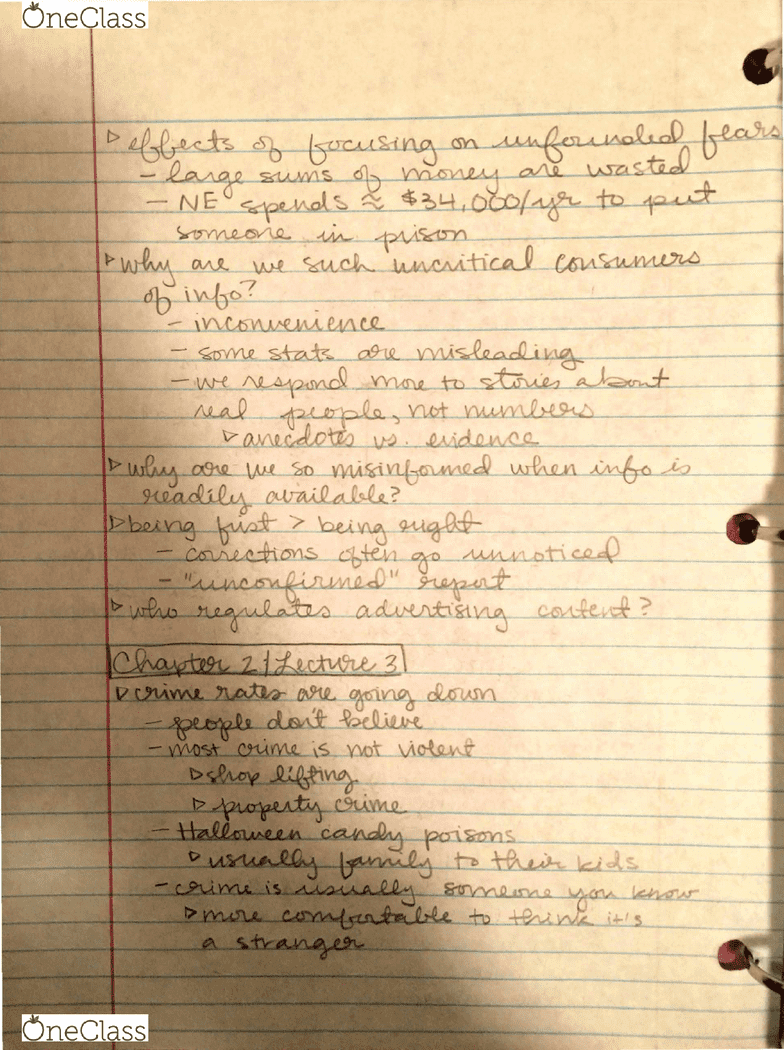 OneClass
▷ effects of focusing on unfounded fears
- large sums of money are wasted
- NE spends ≈ $34,000/yr to put
someone in prison
▷ why are we such uncritical consumers
of info?
- inconvenience
- some stats are misleading
- we respond more to stories about
real people, not numbers
▷ anecdotes vs. evidence
▷ why are we so misinformed when info is
readily available?
▷ being first > being right
- corrections often go unnoticed
- "unconfirmed" report
▷ who regulates advertising content?
Chapter 2 / Lecture 3
▷ crime rates are going down
- people don't believe
- most crime is not violent
▷ shop lifting
▷ property crime
- Halloween candy poisons
▷ usually family to their kids
- crime is usually someone you know
▷ more comfortable to think it's
a stranger
OneClass